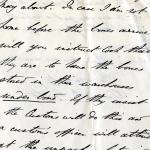 they about. In case I am not
home before the bones arrive
will you instruct Cook that
they are to have the bones
placed in this warehouse
under bond. If they insist
the Customs will do this and
a customs officer will attend
at the